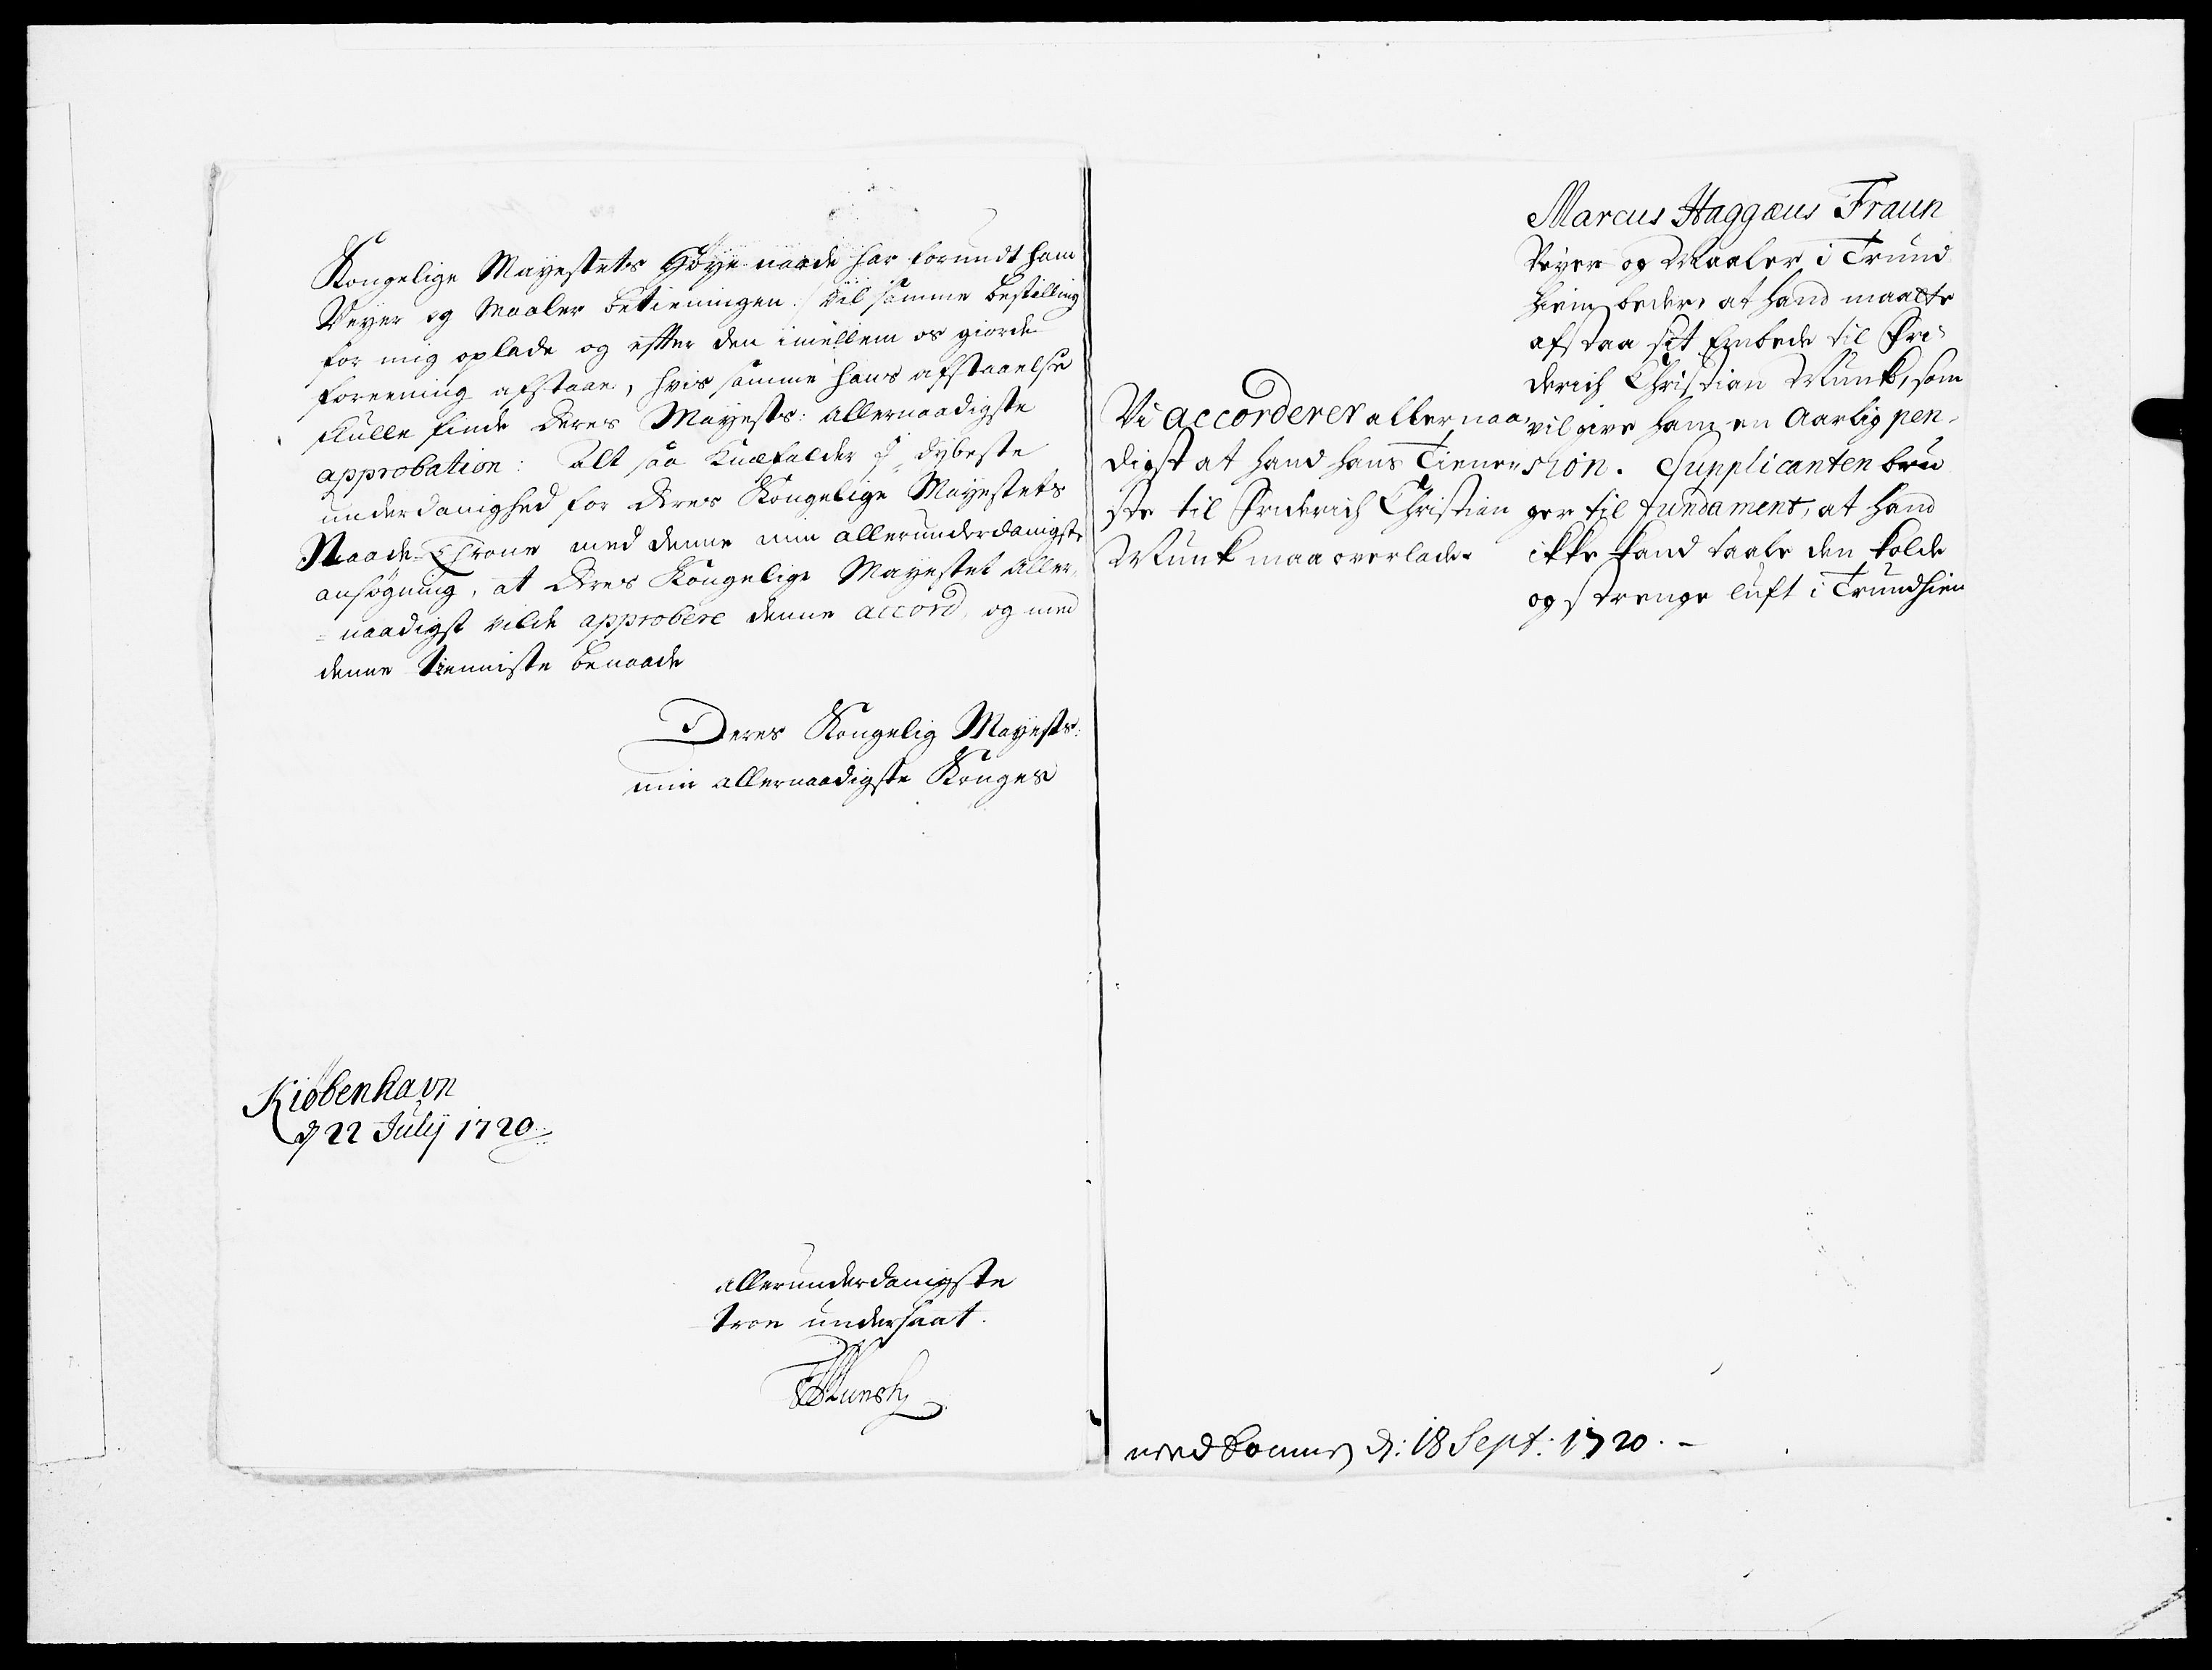 Kongelige Mayestets Høye naade har forundt ham
Veyer og Maaler betieningen :/ vil samme bestilling
for mig oplade og efter den imellem os giorde
foreening afstaae, hvis samme hans afstaaelse
skulle finde Deres Mayests: allernaadigste
approbation: Alt saa Knæfalder i dybeste
underdanighed for Deres Kongelige Mayestets
Naade-Throne med denne min allerunderdanigste
ansøgning, at Deres Kongelige Mayestet aller-
=naadigst vilde approbere denne accord, og med
denne tienniste benaade
Deres Kongelig Mayests:
min allernaadigste Konges
Kiøbenhavn
d 22 Julÿ 1720
allerunderdanigste
troe undersaat.
FCMunck
Marcus Haggæus Fraun
Veyer og Maaler i Trund
hiem beder, at hand maatte
afstaa sit Embede til Fri-
derich Christian Munk, som
vil give ham en Aarlig pen-
sion. Supplicanten bru
ger til fundament, at hand
ikke kand taale den kolde
og strenge luft i Trundhiem
Vi accorderer allernaa-
digst at hand hans Tiene-
ste til Friderich Christian
Munk maa overlade.
nedkommen d: 18 Sept: 1720. -